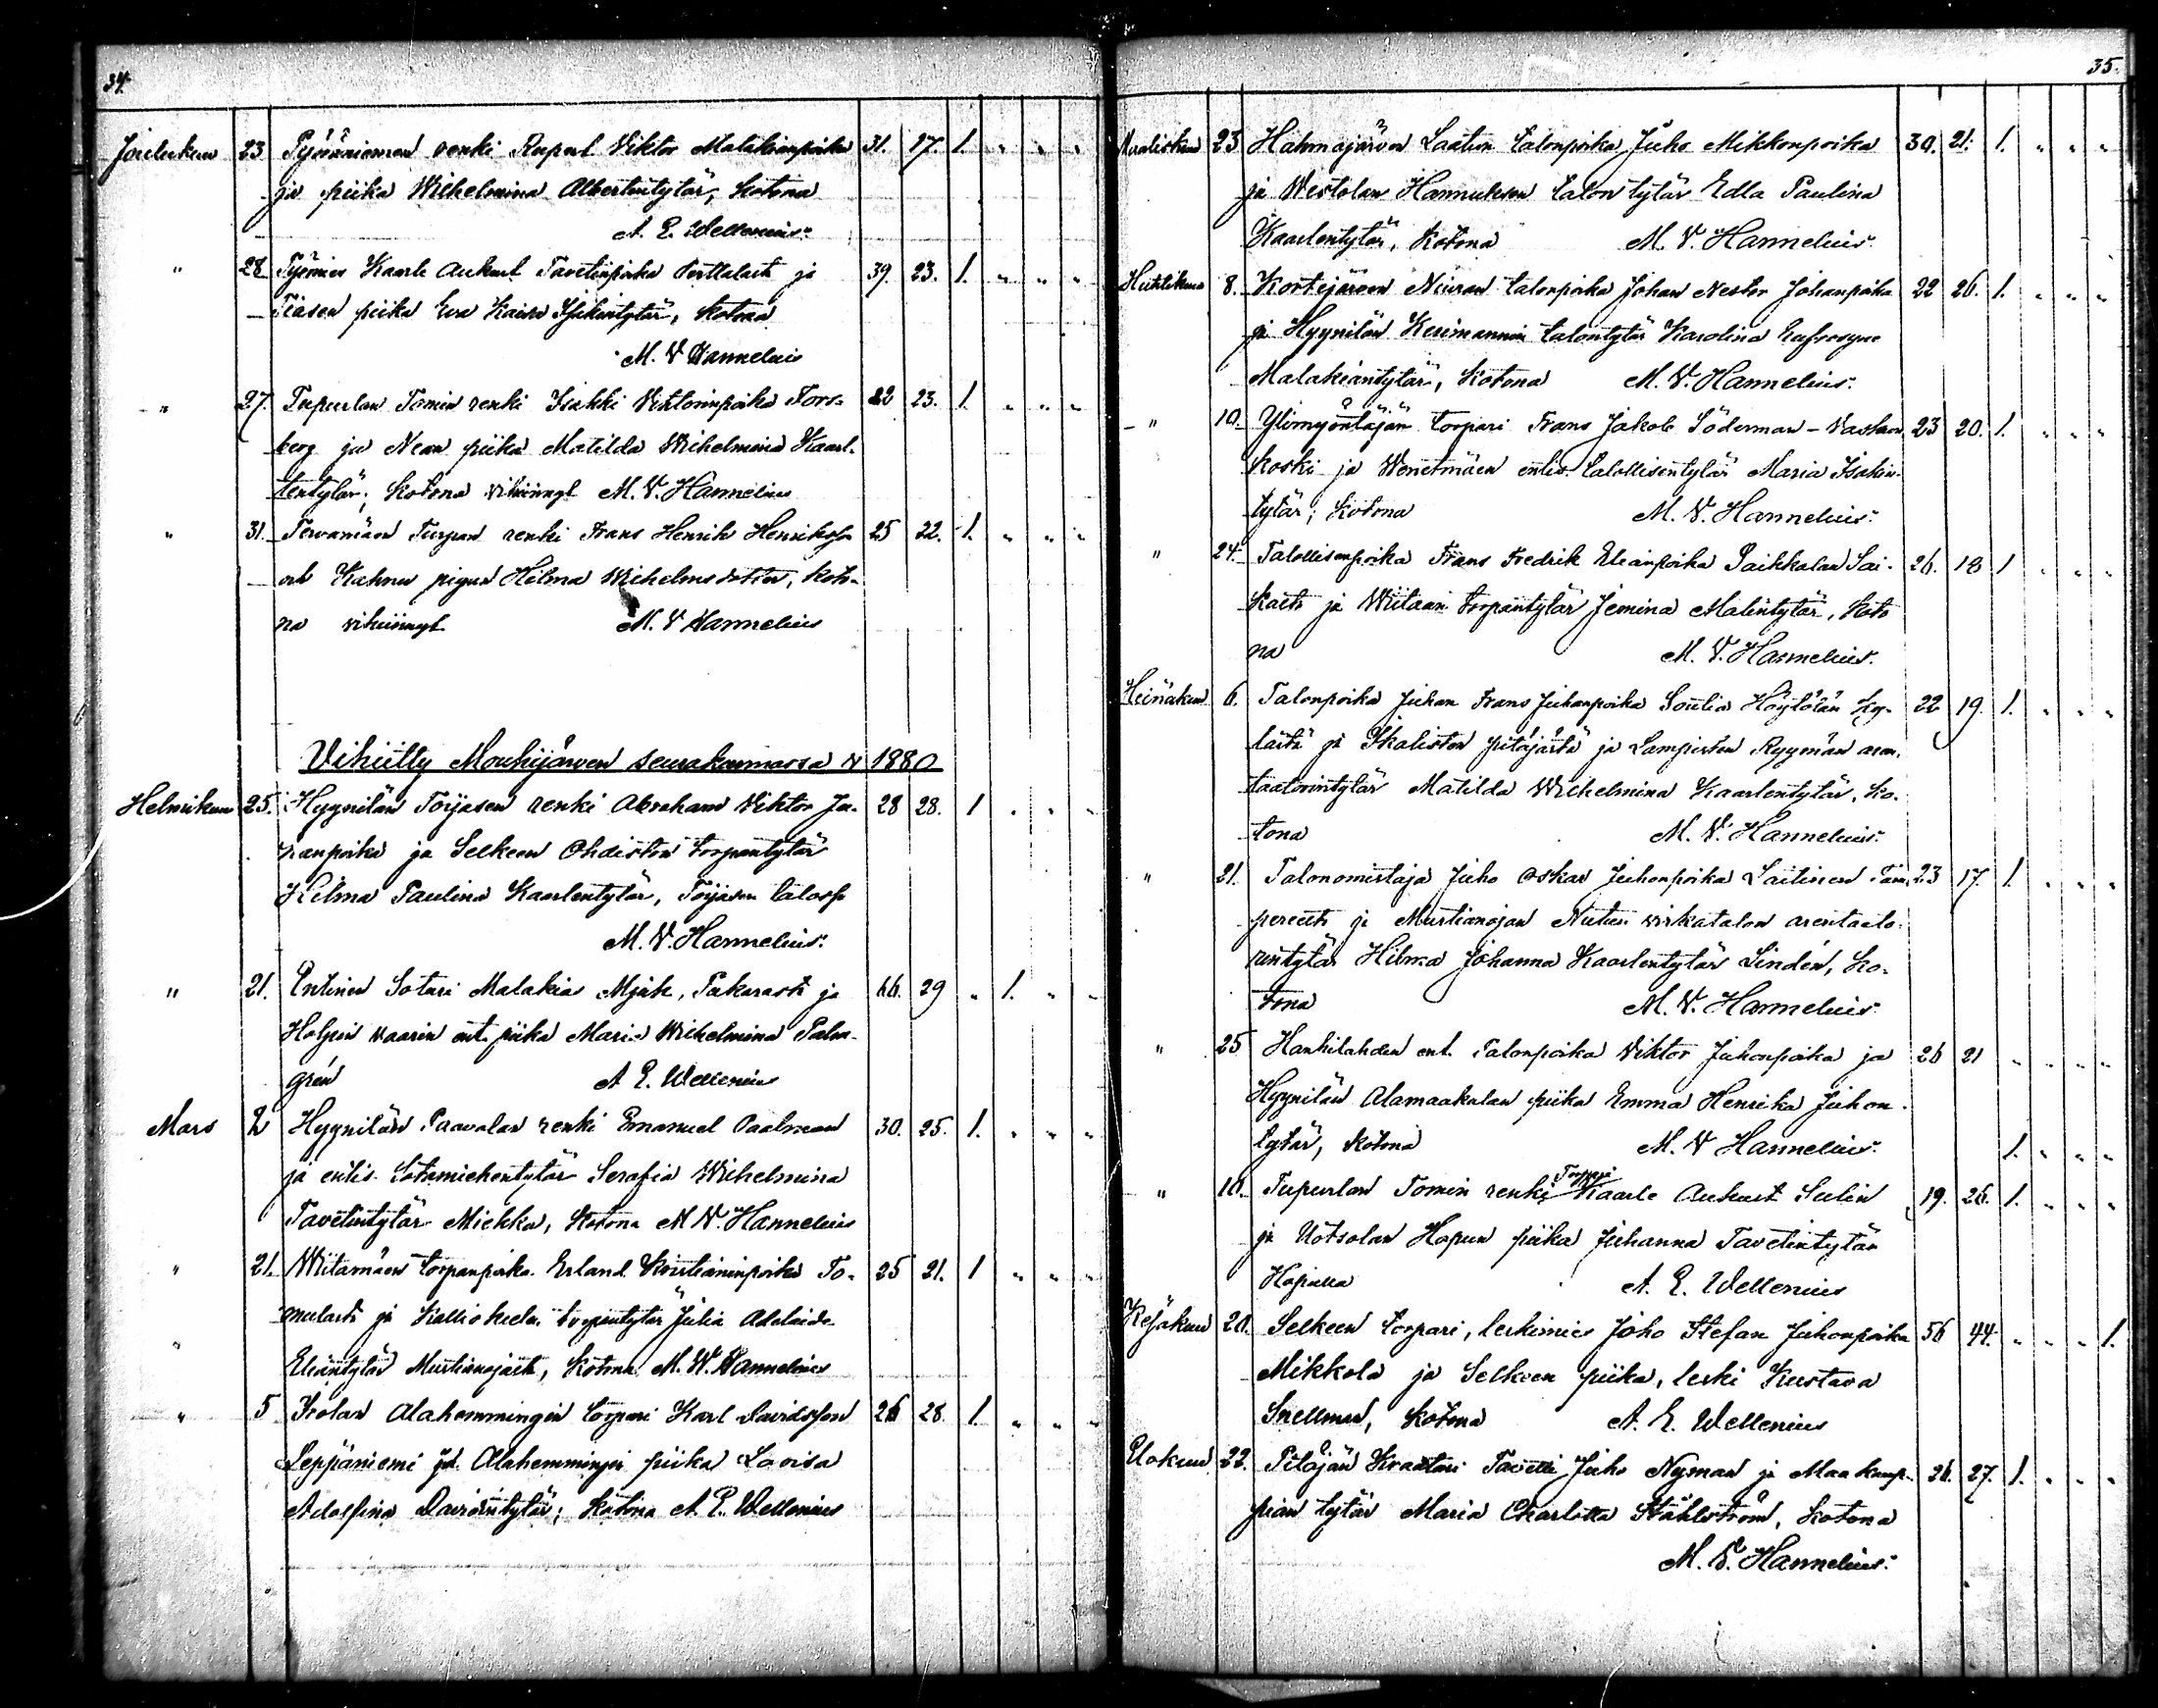 34.
Joulukuu 23 Pyöräniemen renki Rupert Viktor Malakianpoika 31. 27. 1. " " "
ja piika Wilhelmina Albertintytär, kotona
A. E. Wellenius.
" 28 Työmies Kaarle August Tavetinpoika ja 39. 23. 1. " " "
piika Eva Kaisa kotona
M. V. Hannelius
" 27. Tupurlan Tomin renki Isakki Viktorinpoika Fors- 22 23. 1. " " "
berg ja Nean piika Matilda Wilhelmina Kaarl-
tentytär; kotona M. V. Hannelius
" 31. Tervamäen Turpan renki Frans Henrik Henriksson 25 22. 1. " " "
och pigan Hilma Wilhelmsdotter, koto-
na M. V. Hannelius
Vihitty Mouhijärven seurakunnassa v 1880
Helmikuu 25. Hyynilän Töyjäsen renki Abraham Viktor Ju- 28 28. 1 " " "
hanpoika ja Selkeen Ohdiston torpantytär
Hilma Paulina Kaarlentytär, Töyjäsen talossa
M. V. Hannelius.
" 21. Entinen Sotari Malakias ja 66. 29 " 1. " "
vaarin ent. piika Maria Wilhelmina Palm-
grén A. E. Wellenius
Mars 2 Hyynilän Paavolan renki Emanuel Paalman 30. 25. 1. " " "
ja entis. Sotamiehentytär Serafia Wilhelmina
Tavetintytär Miekka, kotona M. V. Hannelius
" 21. Wiitamäen torpanpoika Erland Kristianinpoika To- 25 21. 1 " " "
ja torpantytär Julia Adelaide
" Eliantytär kotona M. V. Hannelius
" 5 Alahemmingin torpari Karl Davidsson 26 28. 1. " " "
Leppäniemi ja Alahemmingin piika Lovisa
Adolfina Davidintytär; kotona A. E. Wellenius
35.
Maaliskuu 23 Hahmajärven Laation talonpoika Juho Mikkonpoika 30. 21. 1. " " "
ja Westolan Hannuksen talontytär Edla Paulina
Kaarlentytär, kotona M. V. Hannelius.
Huhtikuu 8. Kortejärven Niuran talonpoika Johan Nestor Johanpoika 22 26. 1. " " "
ja Hyynilän Kesimannin talontytär Karolina Eufrosyne
Malakiantytär, kotona M. V. Hannelius.
" 10. torpari Frans Jakob Söderman - Vaskon 23 20. 1. " " "
koski ja Wenetmäen entis. talollisentytär Maria Isakin-
tytär; kotona M. V. Hannelius.
" 24. Talollisenpoika Frans Fredrik Elianpoika Paikkalan Sai- 26. 18 1 " " "
ja Wiitaan torpantytär Jemina Malintytär, koto
na M. V. Hannelius.
Heinäkuu 6. Talonpoika Juhan Frans Juhanpoika ky- 22 19. 1. " " "
lästä ja Ikaliston pitäjästä ja Lampisten Ryymän aren-
taatorintytär Matilda Wilhelmina Kaarlentytär, ko-
tona M. V. Hannelius.
" 21. Talonomistaja Juho Oskar Juhonpoika Laitinen Tam- 23 17. 1. " " "
pereelta ja Mustianojan virkatalon arentaato-
rintytär Hilma Johanna Kaarlentytär Lindén, ko-
tona M. V. Hannelius.
" 25 Hankilahden ent. Talonpoika Viktor Juhonpoika ja 26 21 " " " "
Hyynilän Alamaakalan piika Emma Henrika Juhon-
tytär, kotona M. V. Hannelius. 1. " " "
" 10. Tupurlan Tomin renki Torppari Kaarle August Sulin 19. 26. 1. " " "
ja Uotsolan Hopun piika Juhanna Tavetintytär
Hopulla A. E. Wellenius
Kesäkuu 20. Selkeen torpari, leskimies Joho Stefan Juhonpoika 56 44. " " " 1.
Mikkola ja Selkeen piika, leski Kustava
Snellman, kotona A. E. Wellenius
Elokuu 22. Pitäjän Kraatari Tavetti Juho Nyman ja Maakaup- 26. 27. 1. " " "
pian tytär Maria Charlotta Ståhlström, kotona
M. V. Hannelius.